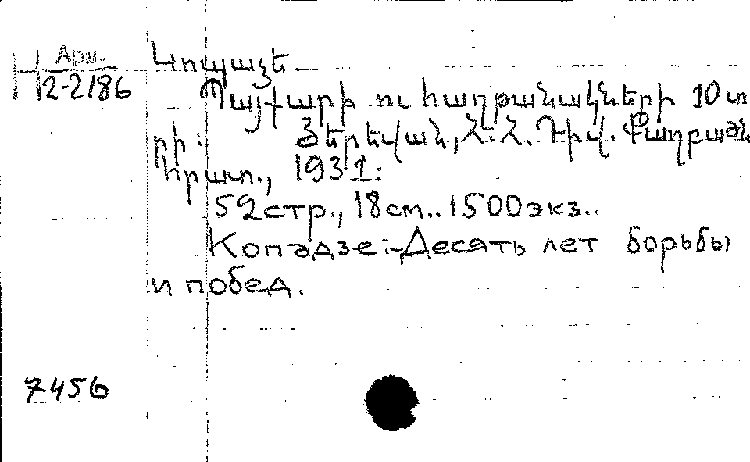 Арм.
2-2186
Կոպաձե
Պայքարի ու հաղթանակների 10 տ
րի: Յերեվան, Հ.Հ.
հրատ., 1931:
52стр., 18см.. 1500экз..
Копадзе.-Десять лет борьбы
и побед.
7456